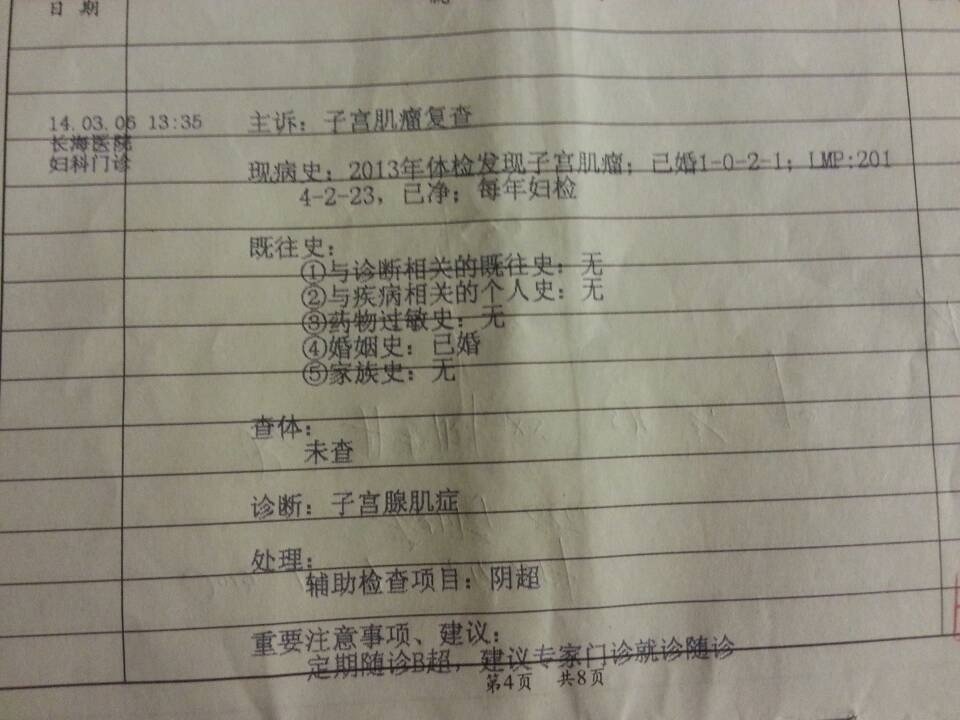 日期
14.03.06 13:35
长海医院
妇科门诊
主诉：子宫肌瘤复查
现病史：2013年体检发现子宫肌瘤；已婚1-0-2-1；LMP:201
4-2-23，已净；每年妇检
既往史：
①与诊断相关的既往史：无
②与疾病相关的个人史：无
③药物过敏史：无
④婚姻史：已婚
⑤家族史：无
查体：
未查
诊断：子宫腺肌症
处理：
辅助检查项目：阴超
重要注意事项、建议：
定期随诊B超，建议专家门诊就诊随诊
第4页 共8页